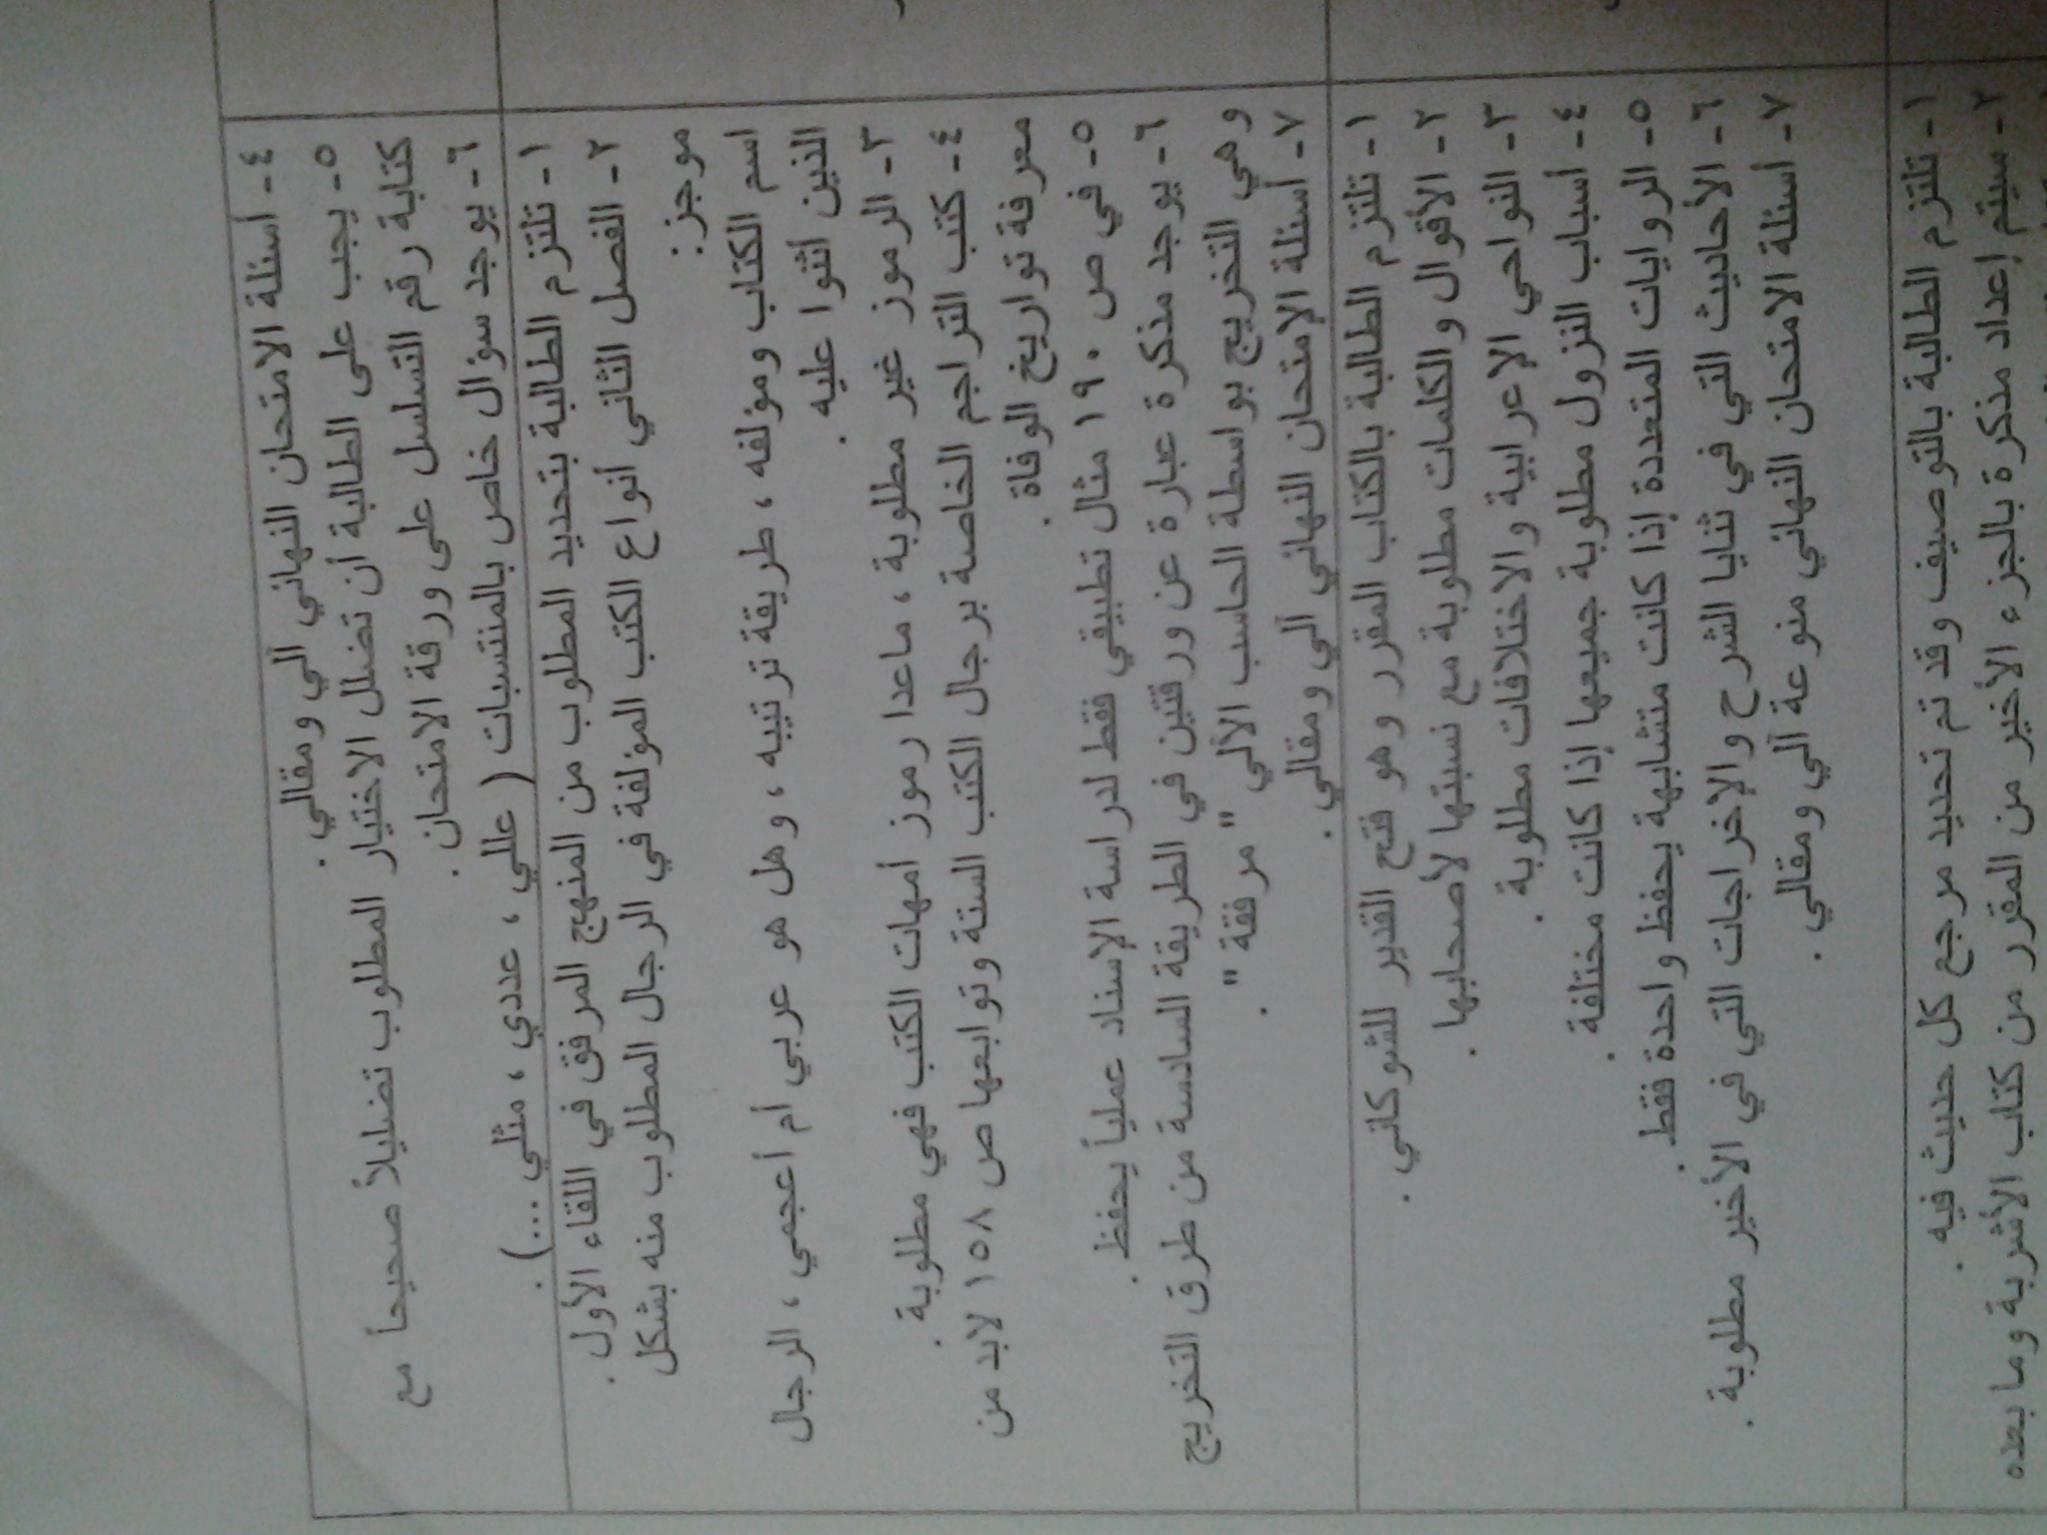 ٤- أسئلة الامتحان النهائي آلي ومقالي .
٥- يجب على الطالبة أن تضلل الاختيار المطلوب تضليلاً صحيحاً مع
كتابة رقم التسلسل على ورقة الامتحان .
٦- يوجد سؤال خاص بالمنتسبات ( عللي ، عددي ، مثلي ...) .
١- تلتزم الطالبة بتحديد المطلوب من المنهج المرفق في اللقاء الأول .
٢- الفصل الثاني أنواع الكتب المؤلفة في الرجال المطلوب منه بشكل
موجز :
اسم الكتاب ومؤلفه ، طريقة ترتيبه ، وهل هو عربي أم أعجمي ، الرجال
الذين أثنوا عليه .
٣- الرموز غير مطلوبة ، ماعدا رموز أمهات الكتب فهي مطلوبة .
٤- كتب التراجم الخاصة برجال الكتب الستة وتوابعها ص ١٥٨ لابد من
معرفة تواريخ الوفاة .
٥- في ص ١٩٠ مثال تطبيقي فقط لدراسة الإسناد عملياً يحفظ .
٦- يوجد مذكرة عبارة عن ورقتين في الطريقة السادسة من طرق التخريج
وهي التخريج بواسطة الحاسب الآلي " مرفقة " .
٧- أسئلة الامتحان النهائي آلي ومقالي .
١- تلتزم الطالبة بالكتاب المقرر وهو فتح القدير للشوكاني .
٢- الأقوال والكلمات مطلوبة مع نسبتها لأصحابها .
٣- النواحي الإعرابية والاختلافات مطلوبة .
٤- أسباب النزول مطلوبة جميعها إذا كانت مختلفة .
٥- الروايات المتعددة إذا كانت متشابهة يحفظ واحدة فقط .
٦- الأحاديث التي في ثنايا الشرح والإخراجات التي في الأخير مطلوبة .
٧- أسئلة الامتحان النهائي منوعة آلي ومقالي .
١- تلتزم الطالبة بالتوصيف وقد تم تحديد مرجع كل حديث فيه .
٢- سيتم إعداد مذكرة بالجزء الأخير من المقرر من كتاب الأشربة وما بعده